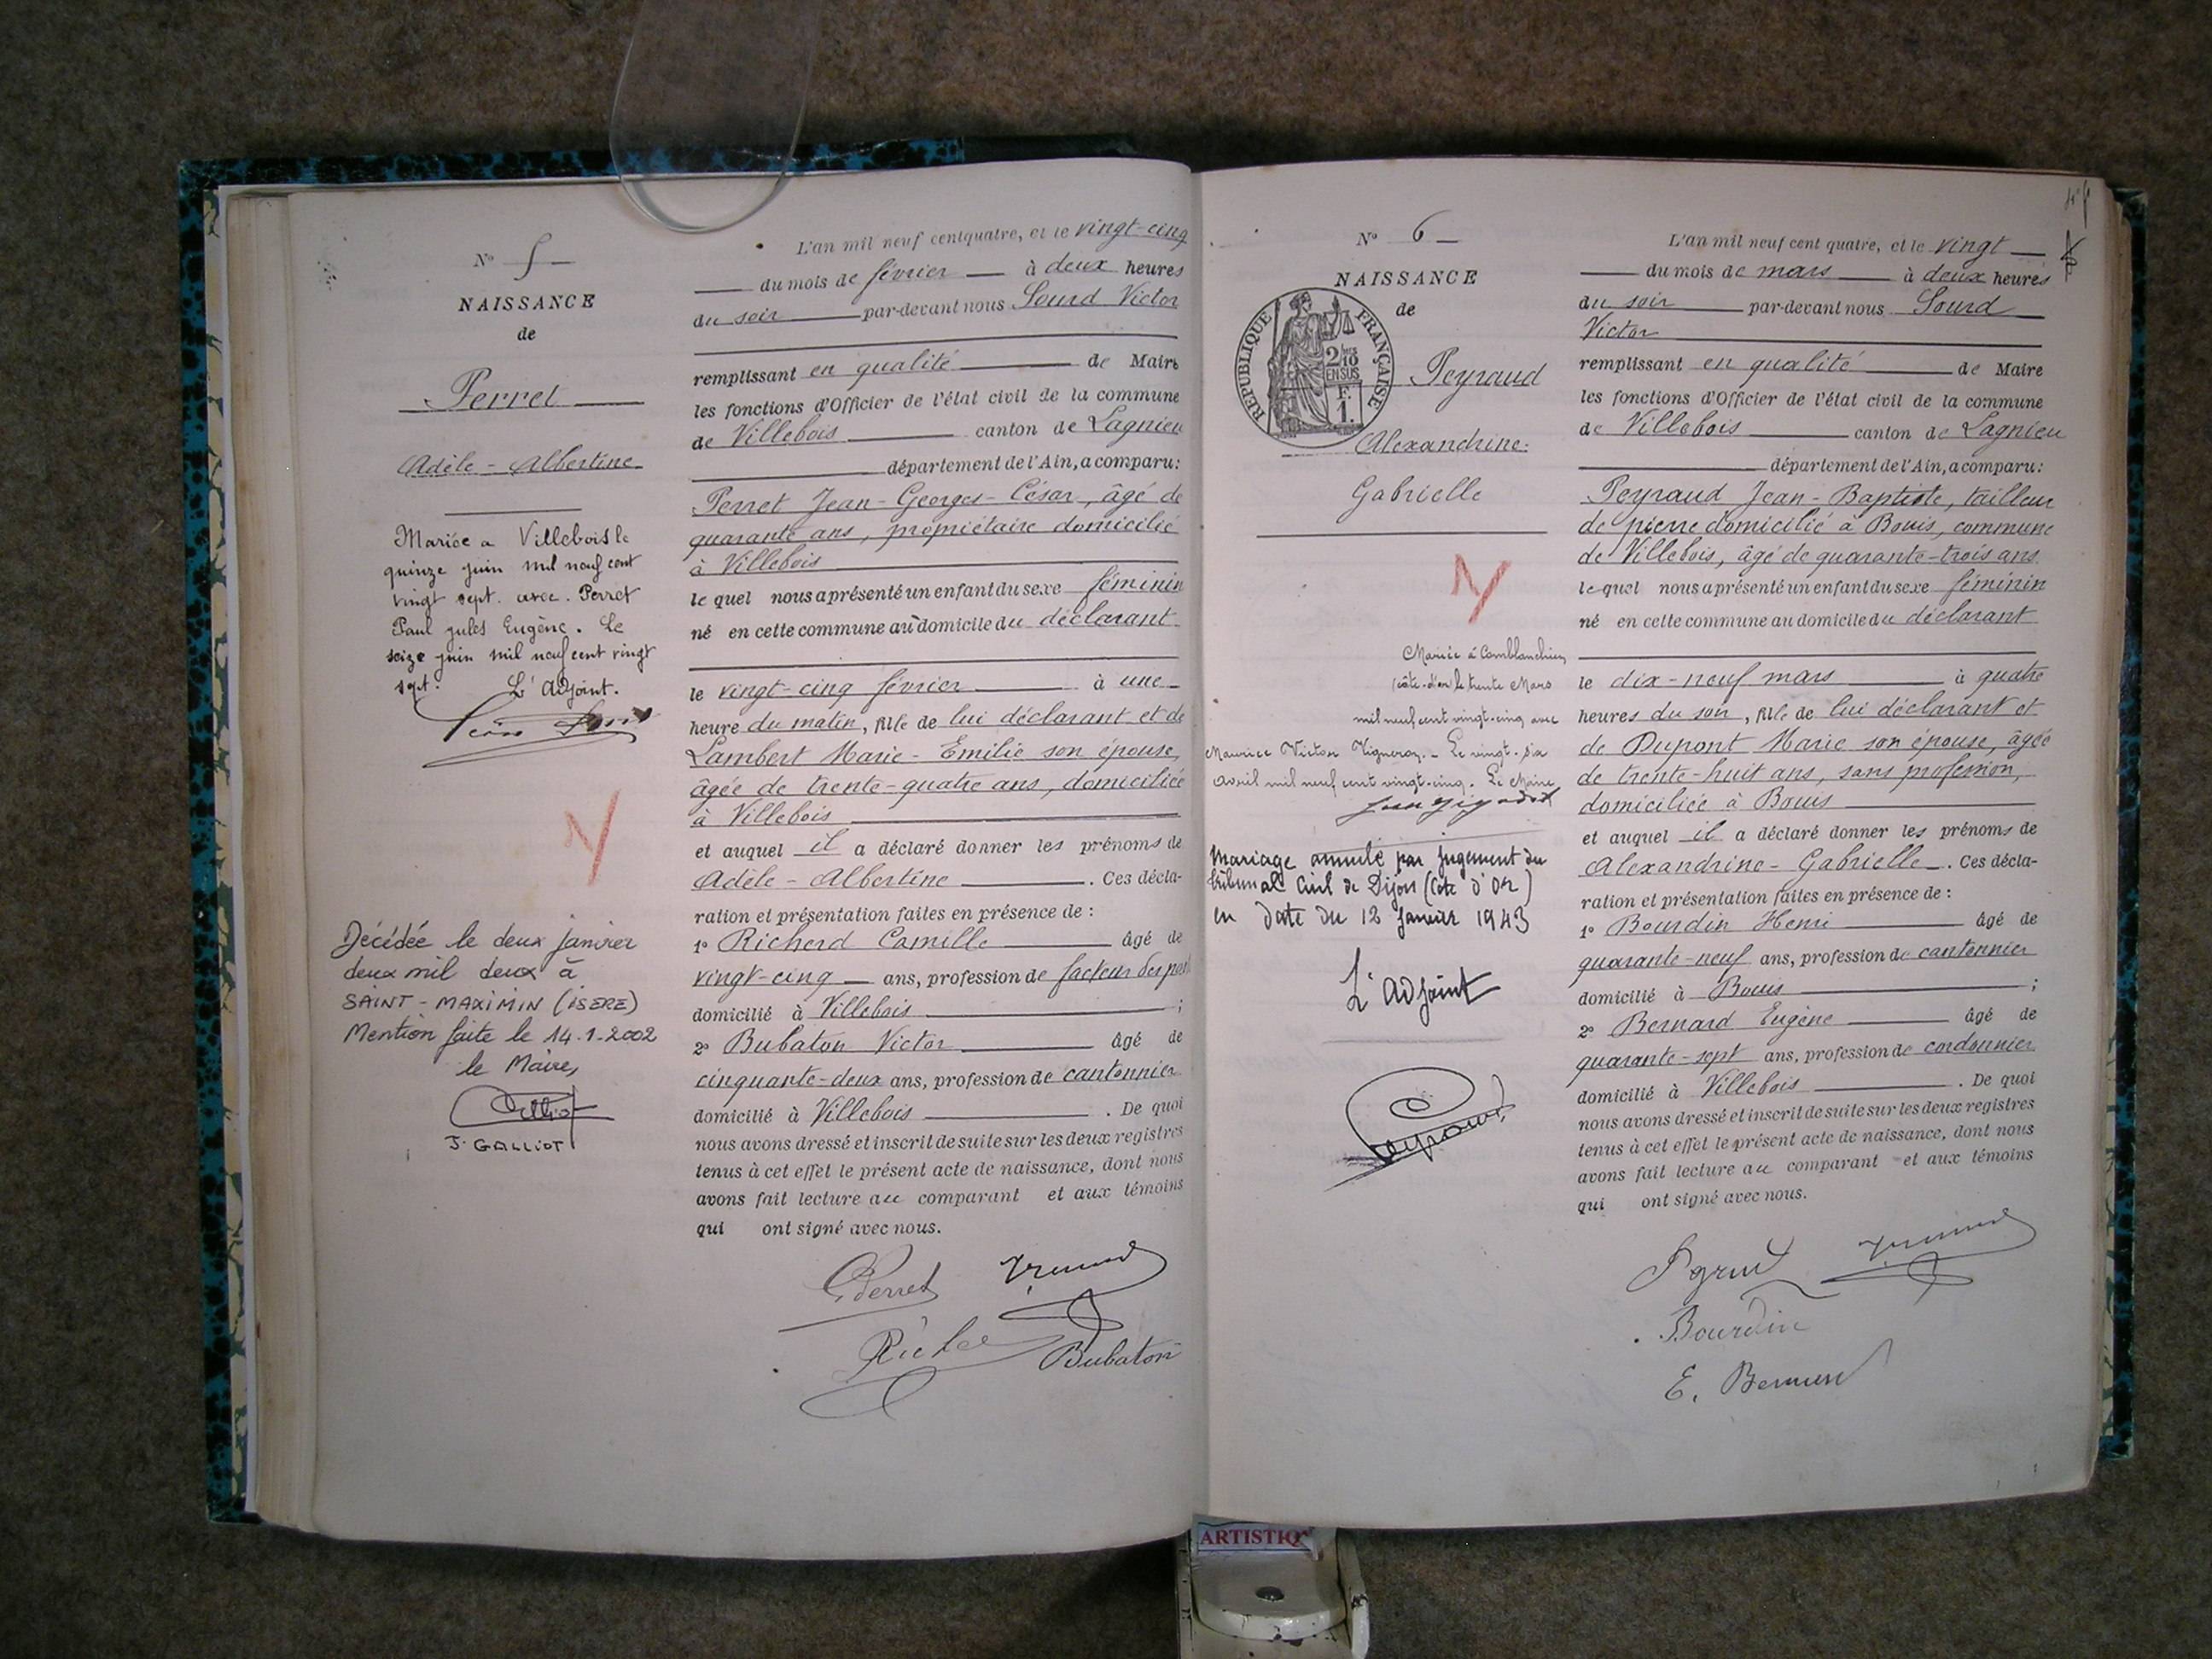 N° 5
NAISSANCE
de
Perret
Adèle - Albertine
Mariée a Villebois le
quinze juin mil neuf cent
vingt sept. avec. Perret
Paul Jules Eugène. Le
seize juin mil neuf cent vingt
sept. L'Adjoint.
Décédée le deux janvier
deux mil deux à
SAINT-MAXIMIN (ISERE)
Mention faite le 14.1.2002
le Maire,
J. GALLIOT
L'an mil neuf cent quatre, et le vingt-cinq
du mois de février à deux heures
du soir par-devant nous Sourd Victor
remplissant en qualité de Maire
les fonctions d'Officier de l'état civil de la commune
de Villebois canton de Lagnieu
département de l'Ain, a comparu:
Perret Jean-Georges-César, âgé de
quarante ans, propriétaire domicilié
à Villebois
le quel nous a présenté un enfant du sexe féminin
né en cette commune au domicile du déclarant
le vingt-cinq février à une
heure du matin, fille de lui déclarant et de
Lambert Marie-Emilie son épouse,
âgée de trente-quatre ans, domiciliée
à Villebois
et auquel il a déclaré donner les prénoms de
Adèle - Albertine. Ces décla-
ration et présentation faites en présence de :
1° Richerd Camille âgé de
vingt-cinq ans, profession de facteur des postes
domicilié à Villebois ;
2° Bubaton Victor âgé de
cinquante-deux ans, profession de cantonnier
domicilié à Villebois. De quoi
nous avons dressé et inscrit de suite sur les deux registres
tenus à cet effet le présent acte de naissance, dont nous
avons fait lecture au comparant et aux témoins
qui ont signé avec nous.
Perret
Bubaton
N° 6
NAISSANCE
de
REPUBLIQUE FRANÇAISE
2/10
EN SUS
F.
1.
Peyraud
Alexandrine.
Gabrielle
Mariée à Comblanchien
(côte-d'or) le trente Mars
mil neuf cent vingt-cinq avec
Maurice Victor Vigneron. - Le vingt-six
avril mil neuf cent vingt-cinq. Le Maire
Mariage annulé par jugement du
tribunal Civil de Dijon (Côte d'Or)
en date du 12 Janvier 1943
L'Adjoint
L'an mil neuf cent quatre, et le vingt
du mois de mars à deux heures
du soir par-devant nous Sourd
Victor
remplissant en qualité de Maire
les fonctions d'Officier de l'état civil de la commune
de Villebois canton de Lagnieu
département de l'Ain, a comparu:
Peyraud Jean-Baptiste, tailleur
de pierre domicilié à Bouis, commune
de Villebois, âgé de quarante-trois ans
le quel nous a présenté un enfant du sexe féminin
né en cette commune au domicile du déclarant
le dix-neuf mars à quatre
heures du soir, fille de lui déclarant et
de Dupont Marie son épouse, âgée
de trente-huit ans, sans profession,
domiciliée à Bouis
et auquel il a déclaré donner les prénoms de
Alexandrine - Gabrielle. Ces décla-
ration et présentation faites en présence de :
1° Bourdin Henri âgé de
quarante-neuf ans, profession de cantonnier
domicilié à Bouis ;
2° Bernard Eugène âgé de
quarante-sept ans, profession de cordonnier
domicilié à Villebois. De quoi
nous avons dressé et inscrit de suite sur les deux registres
tenus à cet effet le présent acte de naissance, dont nous
avons fait lecture au comparant et aux témoins
qui ont signé avec nous.
Bourdin
E. Bernard
ARTISTIQ